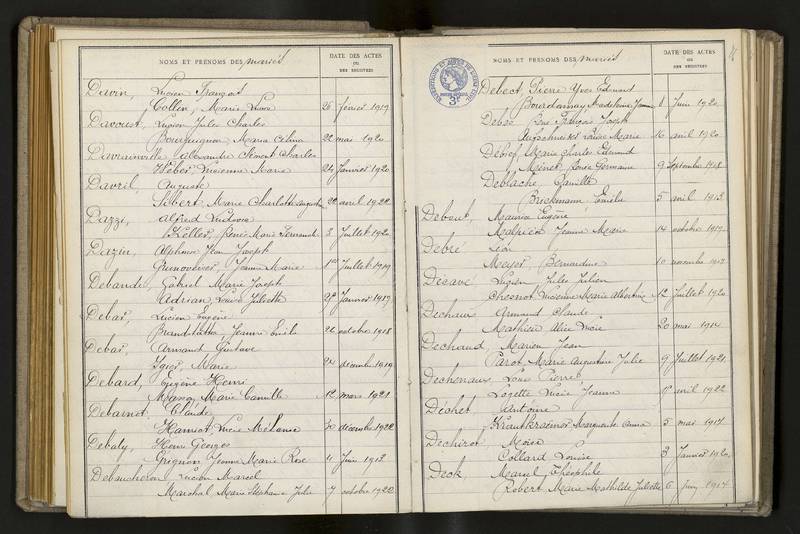 NOMS ET PRÉNOMS DES mariés
DATE DES ACTES
OU
DES REGISTRES
Davin, Lucien François
Collin, Marie
26 février 1919
Davoust, Lucien Jules Charles
Bourguignon, Maria Célina
22 mai 1920
Davrainville, Alexandre Clément Charles
Weber, Lucienne Marie
24 Janvier 1920
Davril, Auguste
Sibert, Marie Charlotte Augustine
22 avril 1922
Dazzi, Alfred Ludovic
Zeller, Renée Marie Fernande
3 Juillet 192
Dazin, Alphonse Jean Joseph
Jeanne Marie
1er Juillet 1919
Debande, Gabriel Marie Joseph
Adrian, Louise Juliette
Janvier 1919
Debar, Lucien Eugène
Brandstatta, Jeanne Emilie
26 octobre 1918
Debar, Armand Gustave
Igier, Marie
24 décembre 1919
Debard, Eugène Henri
Masson, Marie Camille
12 mars 1921
Debarnot, Claude
Hanriot, Lucie Mélanie
30 décembre 1922
Debaty, Henri Georges
Grignon, Jeanne Marie Rose
11 Juin 1913
Debaucheron, Lucien Marcel
Marchal, Marie Stéphanie Julie
7 octobre 1922
NOMS ET PRÉNOMS DES mariés
DATE DES ACTES
OU
DES REGISTRES
3F
Debect, Pierre Yves Edmond
Madeleine Jeanne
1 Juin 1920
François Joseph
Louise Marie
10 avril 1920
Marie Charles Edmond
Minet, Germaine
9 Septembre 1918
Deblache, Camille
Brickmann, Emilie
5 avril 1913
Debout, Maurice Eugène
Malpièce, Jeanne Marie
14 octobre 1919
Debré, Léon
Meyer, Bernardine
10 novembre 1913
Décave, Lucien Jules Julien
Chesnot, Lucienne Marie Albertine
12 Juillet 1920
Dechaux, Armand Claude
Mathieu, Alice Lucie
20 mai 1914
Dechand, Marien Jean
Parot, Marie Augustine Julie
9 Juillet 1921
Dechenaux, Louis Pierre
Lozette, Lucie Jeanne
avril 1922
Déchet, Antoine
Marguerite Anna
5 mai 1917
Dechirot, Moïse
Collard, Louise
3 Janvier 1920
Deck, Marcel Théophile
Robert, Marie Mathilde Juliette
6 Juin 1914